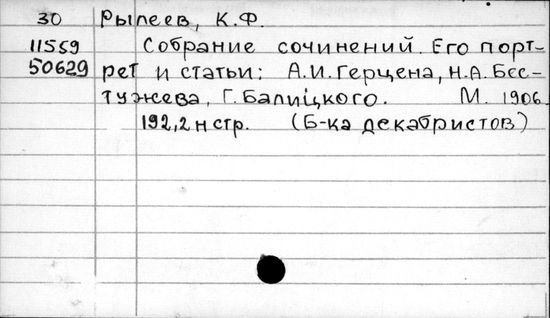 30 Рылеев, К.Ф.
11559 Собрание сочинений. Его порт-
50629 рет и статьи: А.И. Герцена, Н.А. Бес-
тужева, Г. Балицкого. М. 1906
192,2 н стр. (Б-ка декабристов)